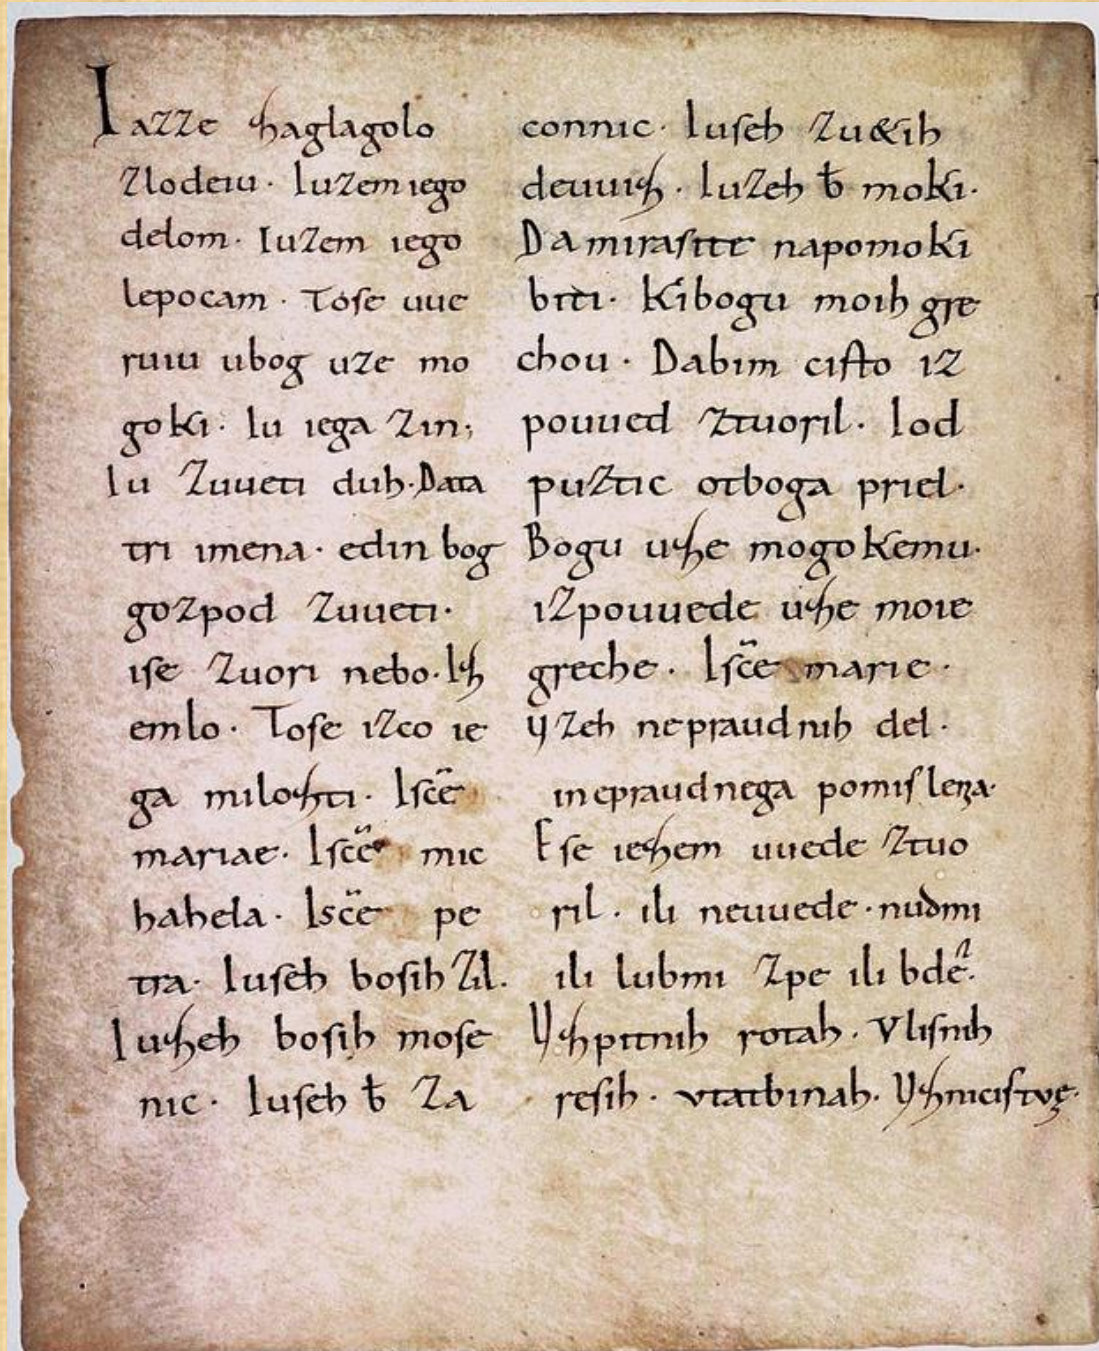 Iazze ꜩaglagolo
zlodeiu· Iuzem iego
delom· Iuzem iego
lepocam· Tose uue
ruiu ubog uze mo
goki· Iu iega zin;
Iu zuueti duh· Data
tri imena· edin bog
gozpod zuueti·
ise zuori nebo· Iꜩ
emlo· Tose izco ie
ga miloꜩti· Isc̄ē
mariae· Isc̄ē mic
hahela· Isc̄ē pe
tra· Iuseh bosih zil·
Iuꜩeh bosih mose
nic· Iuseh ƀ za
connic· Iuseh zu&ih
deuuiꜩ· Iuzeh ƀ moki·
Da mirasite napomoki
biti· Kibogu moih gre
chou· Dabim cisto iz
pouued ztuoril· Iod
puztic otboga priel·
Bogu uꜩe mogokemu·
izpouuede uꜩe moie
greche· Isc̄ē marie·
Yzeh nepraudnih del·
inepraudnega pomislęꝛa·
Ese ieꜩem uuede ztuo
ril· ili neuuede· nudmi
ili lubmi zpe ili bdeˀ·
Yꜩpitnih rotah· Vlisnih
resih· vtatbinah· Yꜩnicistvę·